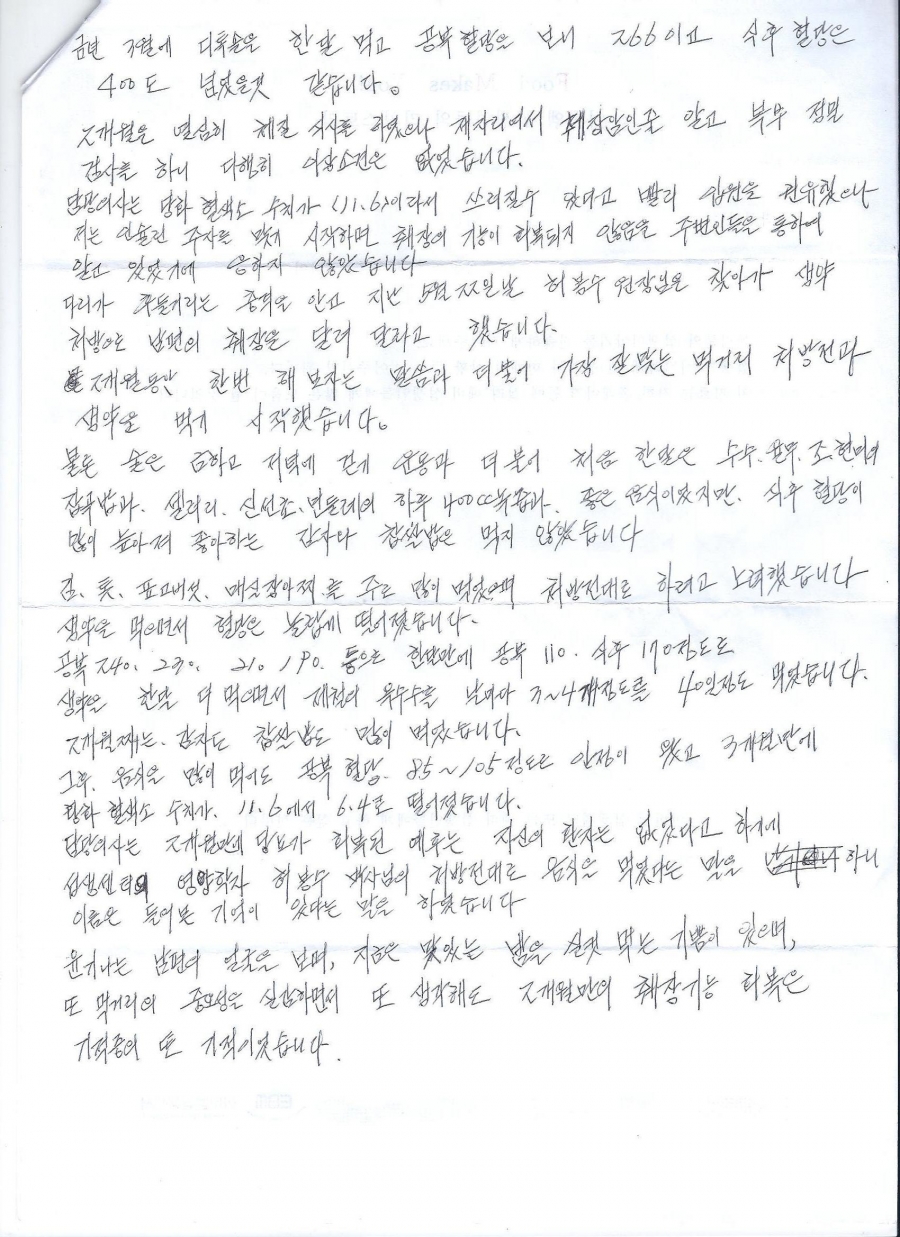 금년 3월에 다류술을 한달 먹고 공복혈당을 보니 266이고 식후 혈당은
400도 넘었을것 같습니다.
2개월을 열심히 체질 식사를 하였으나 제자리여서 췌장암인줄 알고 복부 정밀
검사를 하니 다행히 이상소견은 없었습니다.
담당의사는 당화 혈색소 수치가 (11.6)이라서 쓰러질수 있다고 빨리 입원을 권유했으나
저는 인슐린 주사를 맞기 시작하면 췌장의 기능이 회복되지 않음을 주변인들을 통하여
알고 있었기에 응하지 않았습니다
다리가 후들거리는 충격을 안고 지난 5월 22일날 허봉수 원장님을 찾아가 생약
처방으로 남편의 췌장을 살려 달라고 했습니다.
2개월동안 한번 해보자는 말씀과 더불어 가장 잘맞는 먹거리 처방전과
생약을 먹기 시작했습니다.
물론 술은 금하고 저녁에 걷기 운동과 더불어 처음 한달은 수수.율무.조.현미의
잡곡밥과. 셀러리. 신선초.민들레의 하루 400cc녹즙과. 좋은 음식이었지만. 식후 혈당이
많이 높아져 좋아하는 감자와 찹쌀밥은 먹지 않았습니다
김. 톳. 표고버섯. 매실장아찌.를 주로 많이 먹었으며 처방전대로 하려고 노력했습니다
생약을 먹으면서 혈당은 놀랍게 떨어졌습니다.
공복 240. 230. 210. 190. 등으로 한달만에 공복 110. 식후 170정도로
생약은 한달 더 먹으면서 제철의 옥수수를 날마다 3~4개정도를 40일정도 먹었습니다.
2개월째는. 감자도 찹쌀밥도 많이 먹었습니다.
그후. 음식을 많이 먹어도 공복 혈당. 85~105정도로 안정이 됐고 3개월만에
당화 혈색소 수치가. 11.6에서 6.4로 떨어졌습니다.
담당의사는 2개월만에 당뇨가 회복된 예로는 자신의 환자는 없었다고 하기에
섭생센터의 영양학자 허봉수 박사님의 처방전대로 음식을 먹었다는 말을 하니
이름은 들어본 기억이 있다는 말을 하였습니다
윤기나는 남편의 얼굴을 보며, 지금은 맛있는 밥을 실컷 먹는 기쁨이 있으며,
또 먹거리의 중요성을 실감하면서 또 생각해도 2개월만의 췌장기능 회복은
기적중의 또 기적이었습니다.